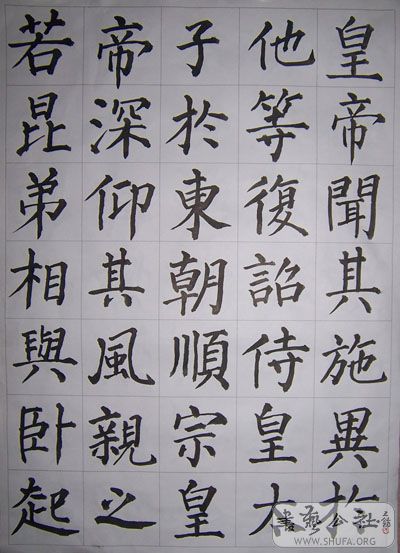 皇帝聞其施異於
他等復詔侍皇太
子於東朝順宗皇
帝深仰其風親之
若昆弟相與卧起
書藝公社
WWW.SHUFA.ORG